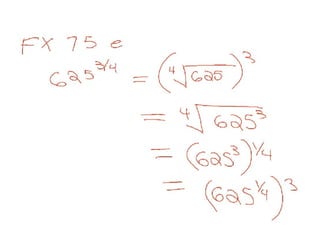 FX 75 e
625^{3/4} = (∜625)^3
= ∜625^3
= (625^3)^{1/4}
= (625^{1/4})^3